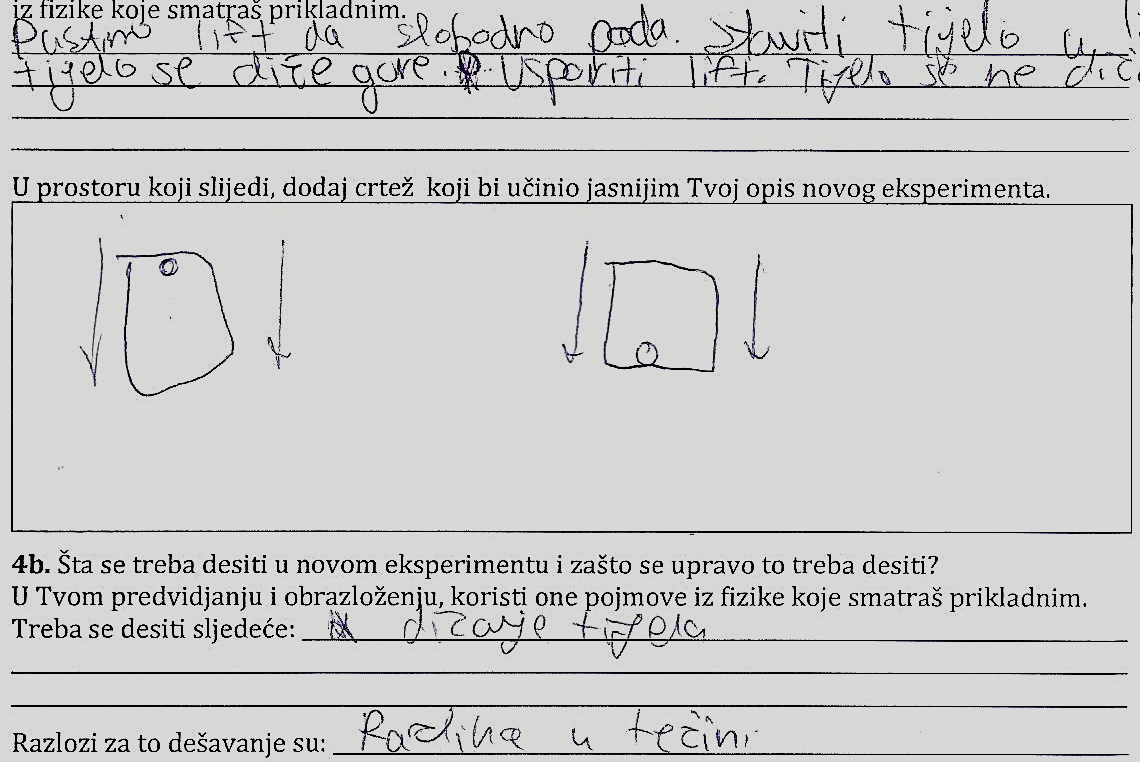 iz fizike koje smatraš prikladnim.
Pustimo lift da slobodno pada. Staviti tijelo u
tijelo se diže gore. Usporiti lift. Tijelo se ne diž
U prostoru koji slijedi, dodaj crtež koji bi učinio jasnijim Tvoj opis novog eksperimenta.
4b. Šta se treba desiti u novom eksperimentu i zašto se upravo to treba desiti?
U Tvom predvidjanju i obrazloženju, koristi one pojmove iz fizike koje smatraš prikladnim.
Treba se desiti sljedeće: dizanje tijela
Razlozi za to dešavanje su: Razlika u težini